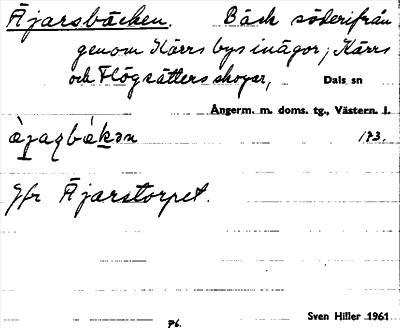 Äjarsbäcken. Bäck söderifrån
genom Kärrs bys inägor; Kärrs
och Högsätters skogar, Dals sn
Ångerm. m. doms. tg., Västern. l.
193.
Jfr Äjarstorpet.
76. Sven Hiller 1961